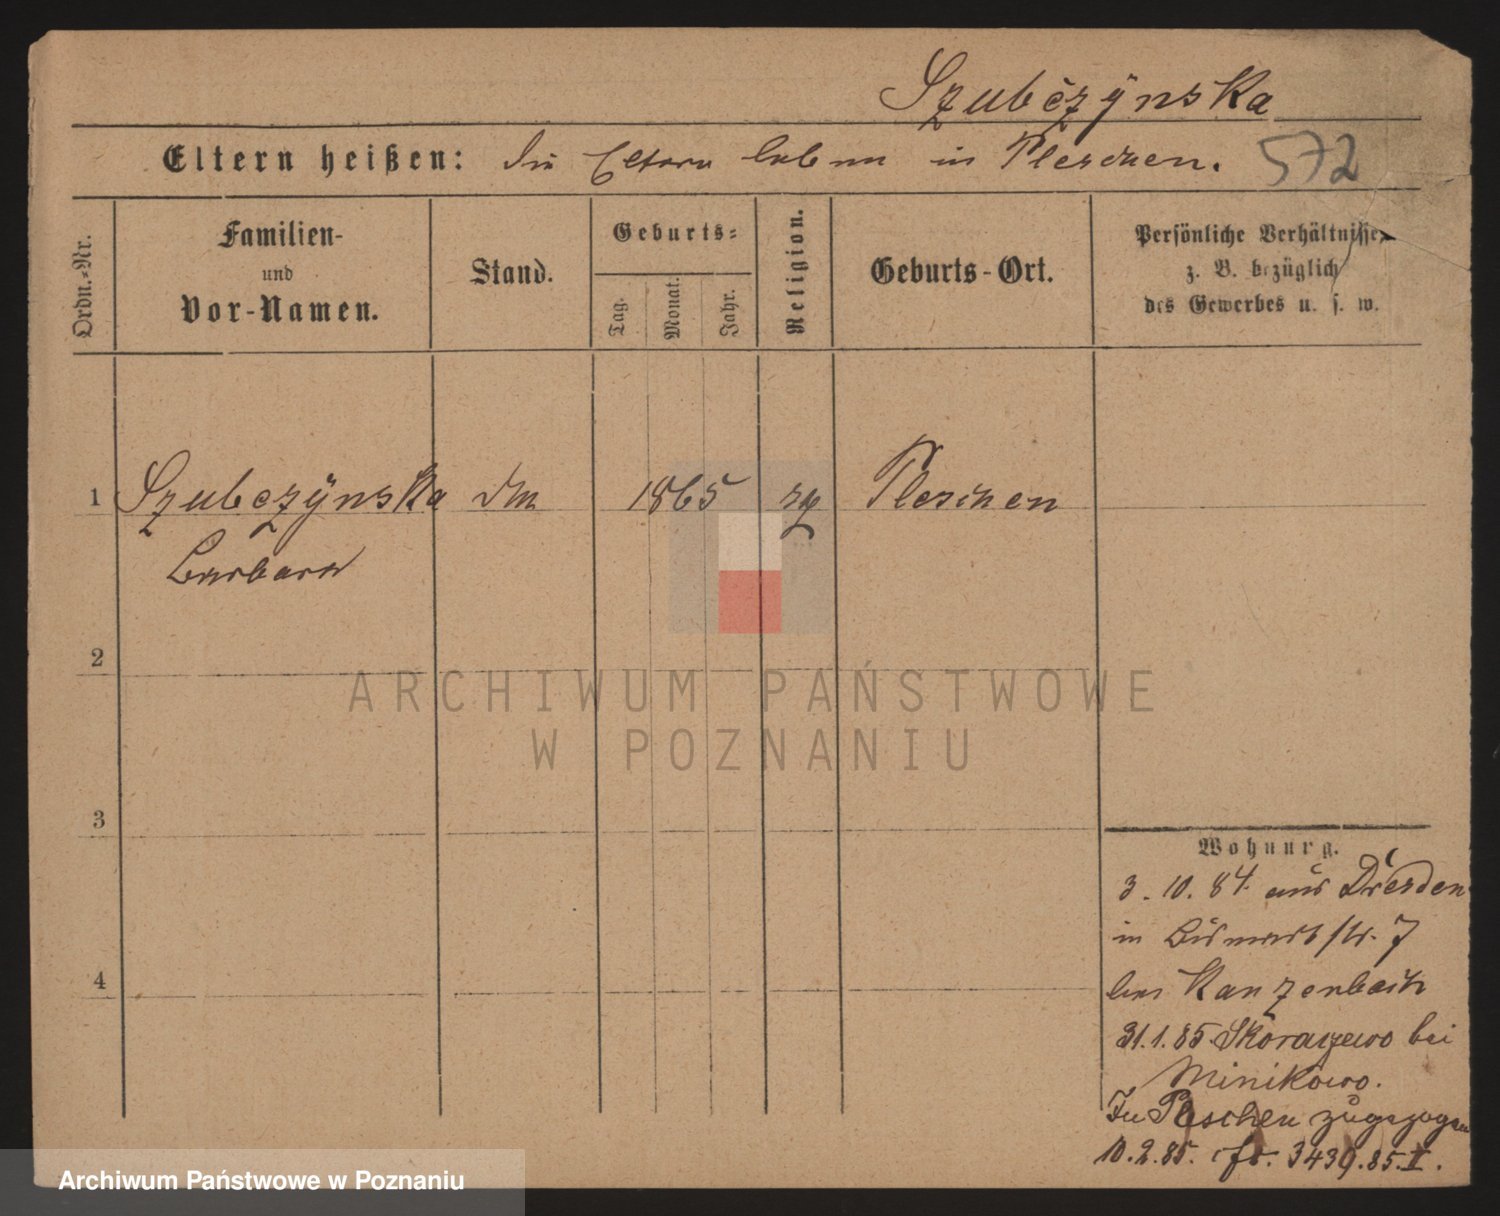 Szubczÿnska
Eltern heißen: die Eltern leben in Pleschen. 572
Ordn.-Nr.
Familien-
und
Vor-Namen.
Stand.
Geburts-
Tag.
Monat.
Jahr.
Religion.
Geburts-Ort.
Persönliche Verhältnisse
z. B. bezüglich
des Gewerbes u. s. w.
1 Szubczÿnska 1865 Pleschen
Barbara
2
3
4
Wohnung.
3. 10. 84. aus Dresden
in Bismarkstr. 7
bei Kanzenbach
31.1.85. Skorazewo bei
Minikowo.
In Pleschen zugezogen
10.2.85. cfr. 3439.85.II.
ARCHIWUM PAŃSTWOWE
W POZNANIU
Archiwum Państwowe w Poznaniu